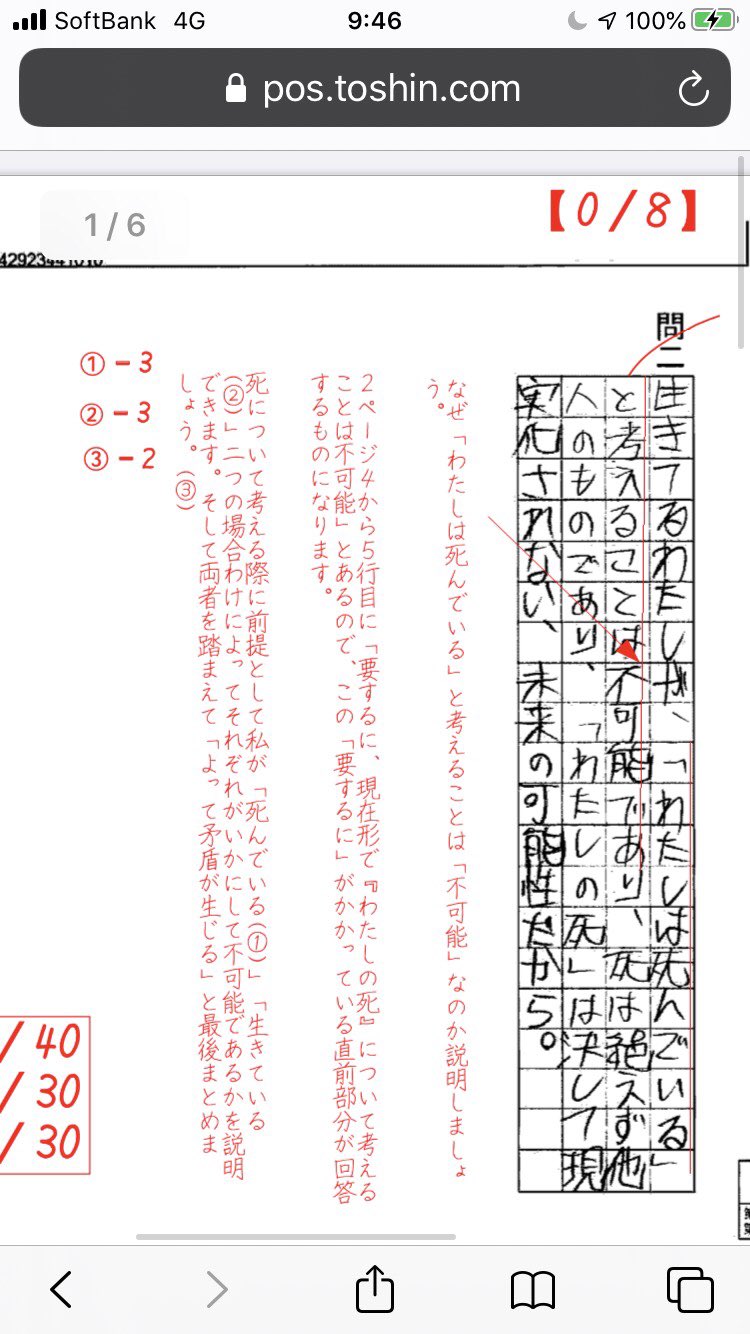 SoftBank 4G 9:46 100%
pos.toshin.com
1/6
【0/8】
問二
生きてるわたしが、「わたしは死んでいる」
と考えることは不可能であり、死は絶えず他
人のものであり、「わたしの死」は決して現
実化されない、未来の可能性だから。
なぜ「わたしは死んでいる」と考えることは「不可能」なのか説明しましょ
う。
2ページ4から5行目に「要するに、現在形で『わたしの死』について考える
ことは不可能」とあるので、この「要するに」がかかっている直前部分が回答
するものになります。
死について考える際に前提として私が「死んでいる(①)」「生きている
(②)」二つの場合わけによってそれぞれがいかにして不可能であるかを説明
できます。そして両者を踏まえて「よって矛盾が生じる」と最後まとめま
しょう。(③)
① -3
② -3
③ -2
/ 40
/ 30
/ 30